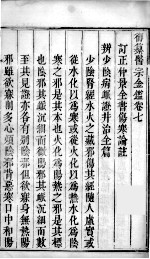 御纂醫宗金鑑卷七
訂正仲景全書傷寒論註
辨少陰病脈證并治全篇
少陰腎經水火之藏邪傷其經隨人虛實或
從水化以為寒或從火化以為熱水化為陰
寒之邪是其本也火化為陽熱之邪是其標
也陰邪其脈沉細而微陽邪其脈沉細而數
至其見證亦各有別陰邪但欲寐身無熱陽
邪雖欲寐則多心煩陰邪背惡寒口中和陽